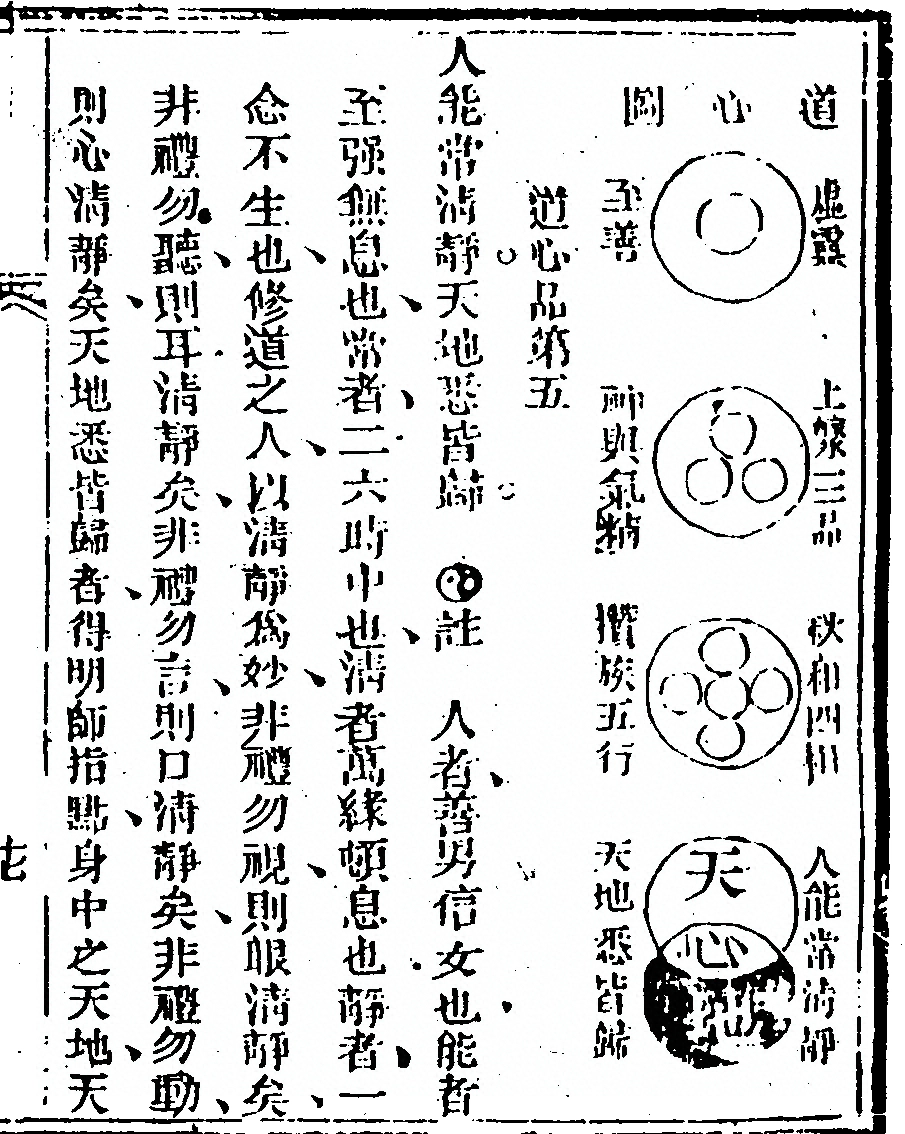 道心圖
虛靈
至善
上藥三品
神與氣精
攸和四相
攢族五行
人能常清靜
天地悉皆歸
天
心
地
道心品第五
人能常清靜天地悉皆歸 註 人者善男信女也能者
至强無息也常者二六時中也清者萬緣頓息也靜者一
念不生也修道之人以清靜為妙非禮勿視則眼清靜矣
非禮勿聽則耳清靜矣非禮勿言則口清靜矣非禮勿動
則心清靜矣天地悉皆歸者得明師指點身中之天地天